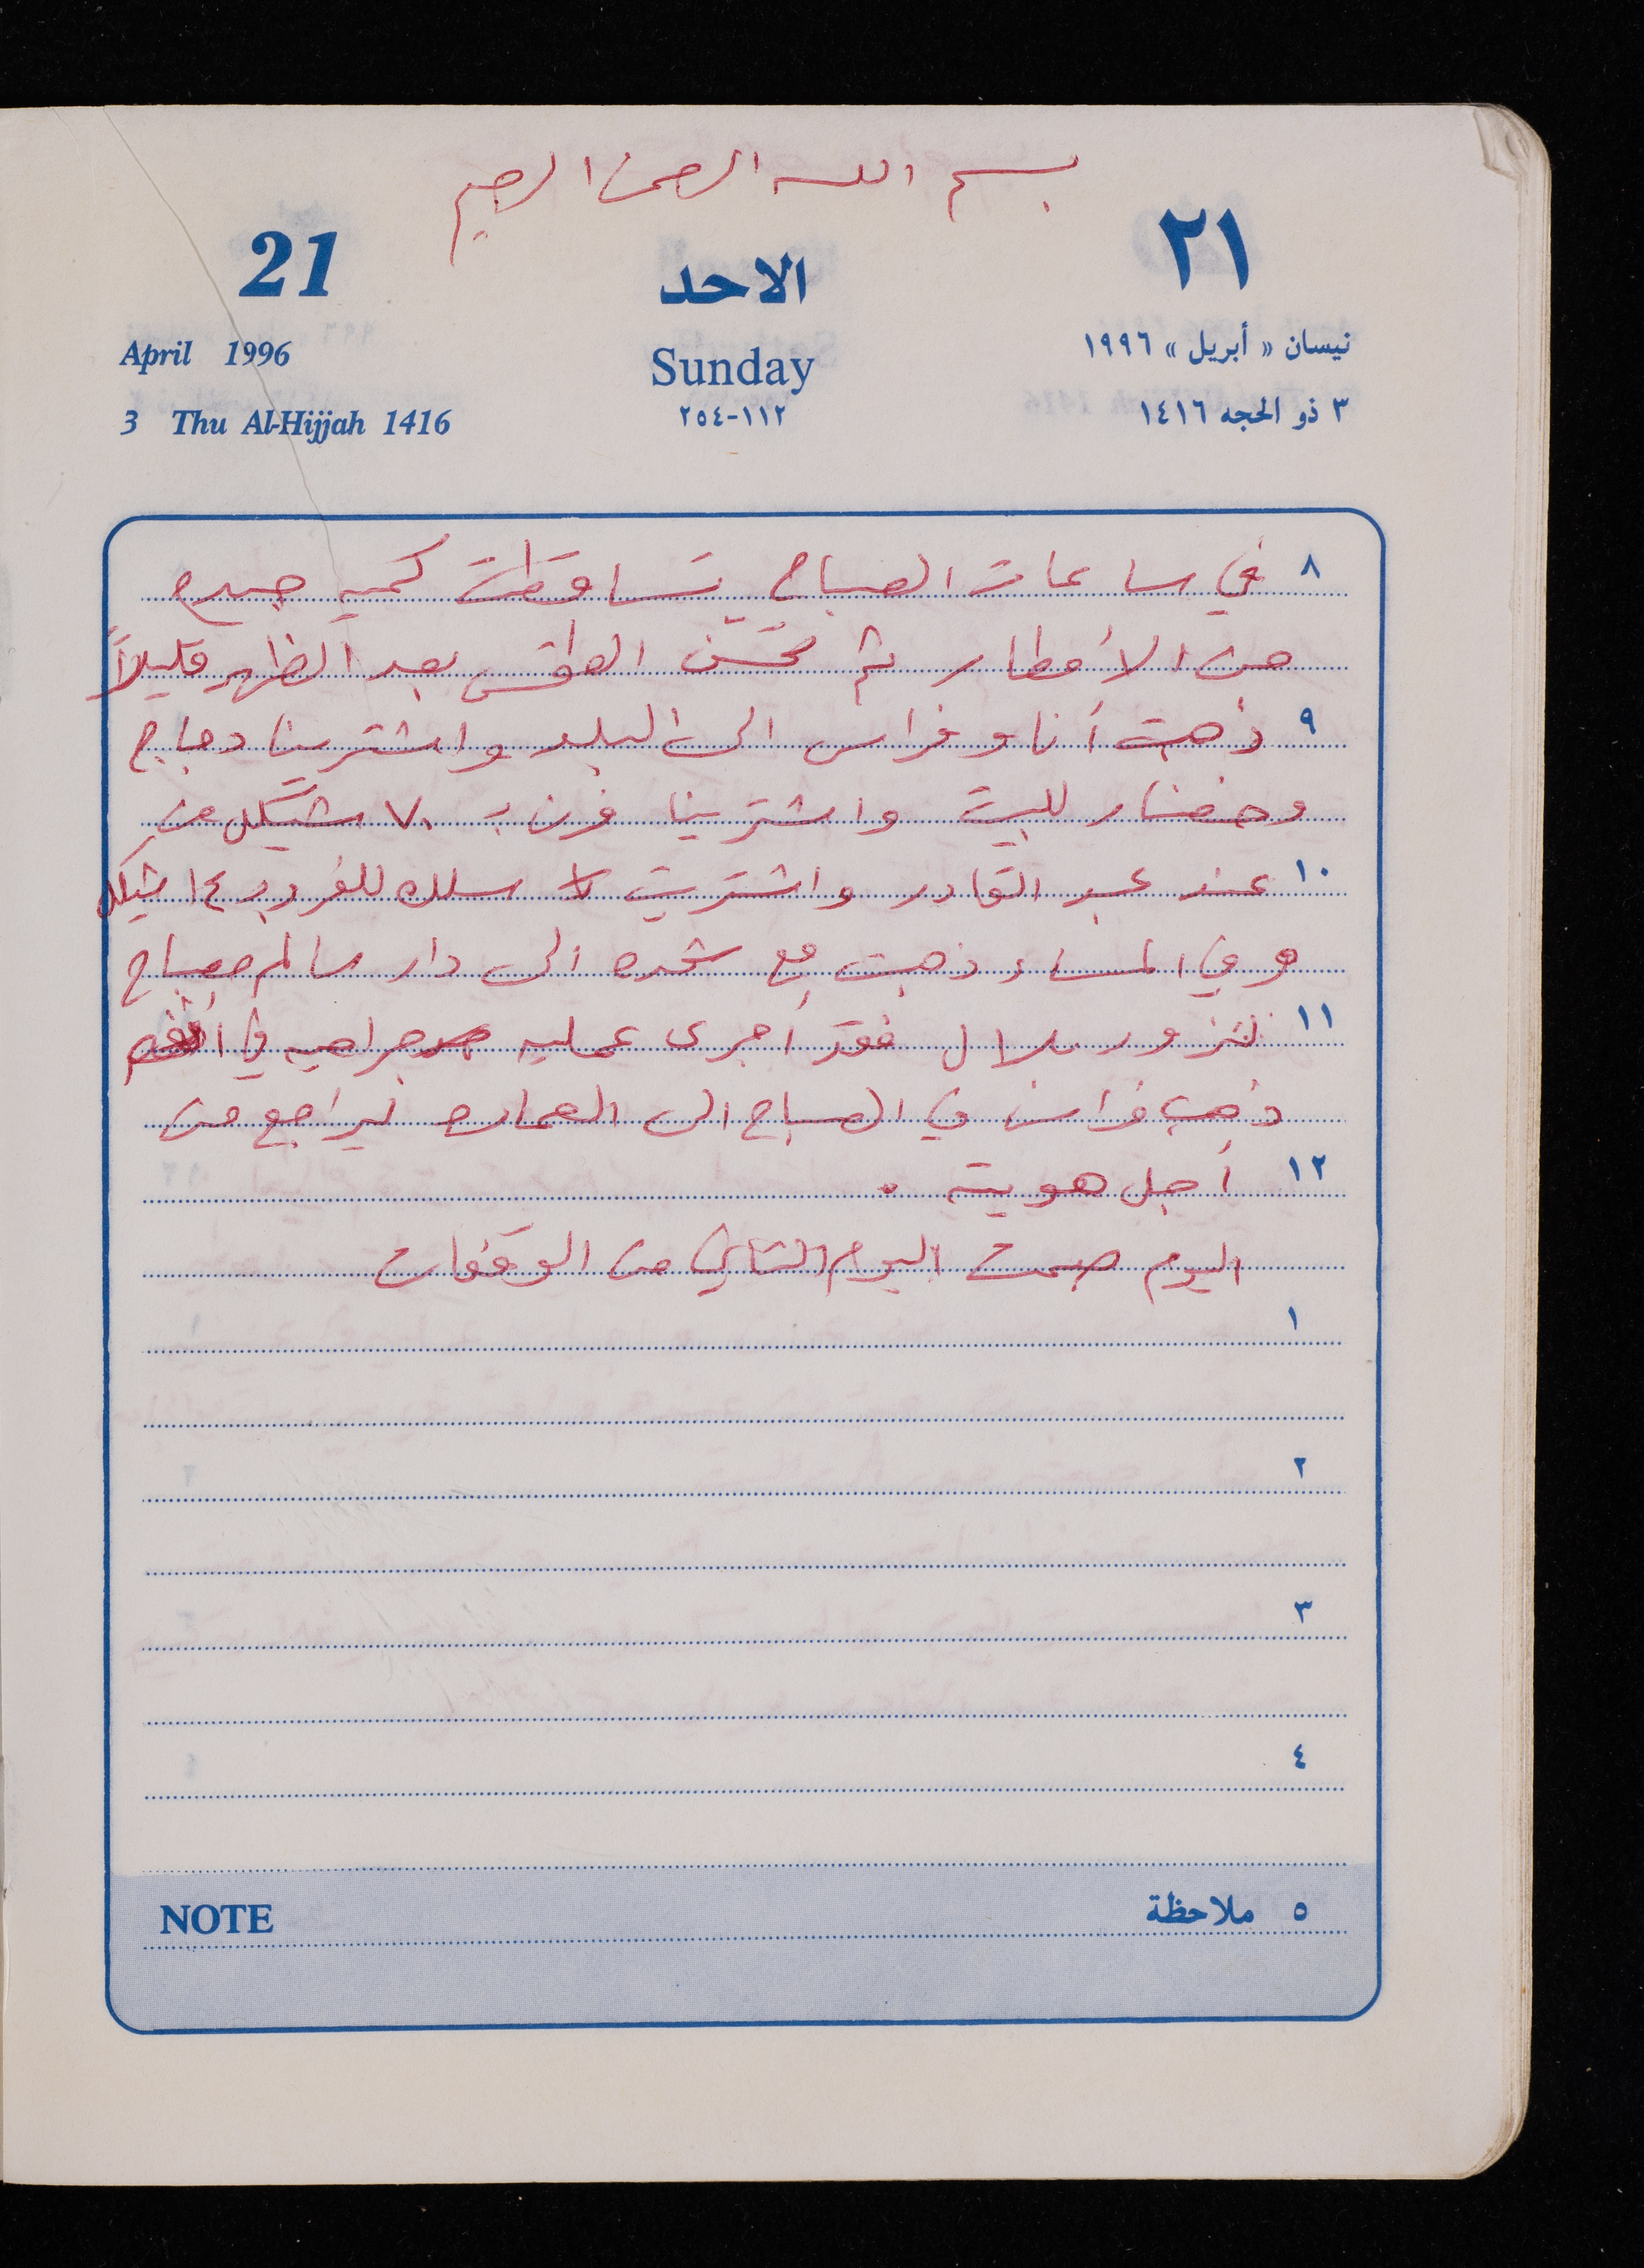 بسم الله الرحمن الرحيم
21 الاحد ٢١
April 1996 Sunday نيسان « أبريل » ١٩٩٦
3 Thu Al-Hijjah 1416 ١١٢-٢٥٤ ٣ ذو الحجه ١٤١٦
٨ في ساعات الصباح تساقطت كميه جيده
من الأمطار ثم تحسّن الطقس بعد الظهر قليلاً
٩ ذهبت أنا وفراس الى البلد واشترينا دجاج
وخضار للبيت واشترينا فرن بـ ٧٠ شيكل من
١٠ عند عبد القادر واشتريت سلك للفرد بـ ١٤ شيكل
وفي المساء ذهبت مع شحده الى دار سالم مصباح
١١ لنزور بلال فقد أجرى عمليه جراحيه في
ذهب فراس في الصباح الى العماره ليراجع من
١٢ أجل هويته .
اليوم صمت اليوم الثاني من الوقفات
١
٢
٣
٤
NOTE ٥ ملاحظة